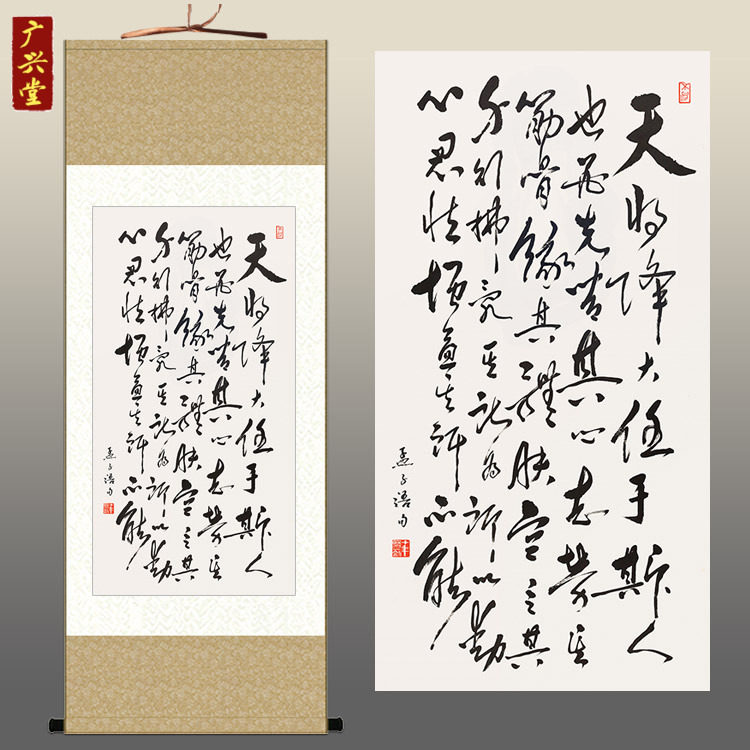 广兴堂
天将降大任于斯人
也必先苦其心志劳其
筋骨饿其体肤空乏其
身行拂乱其所为所以动
心忍性增益其所不能
孟子语句
天将降大任于斯人
也必先苦其心志劳其
筋骨饿其体肤空乏其
身行拂乱其所为所以动
心忍性增益其所不能
孟子语句